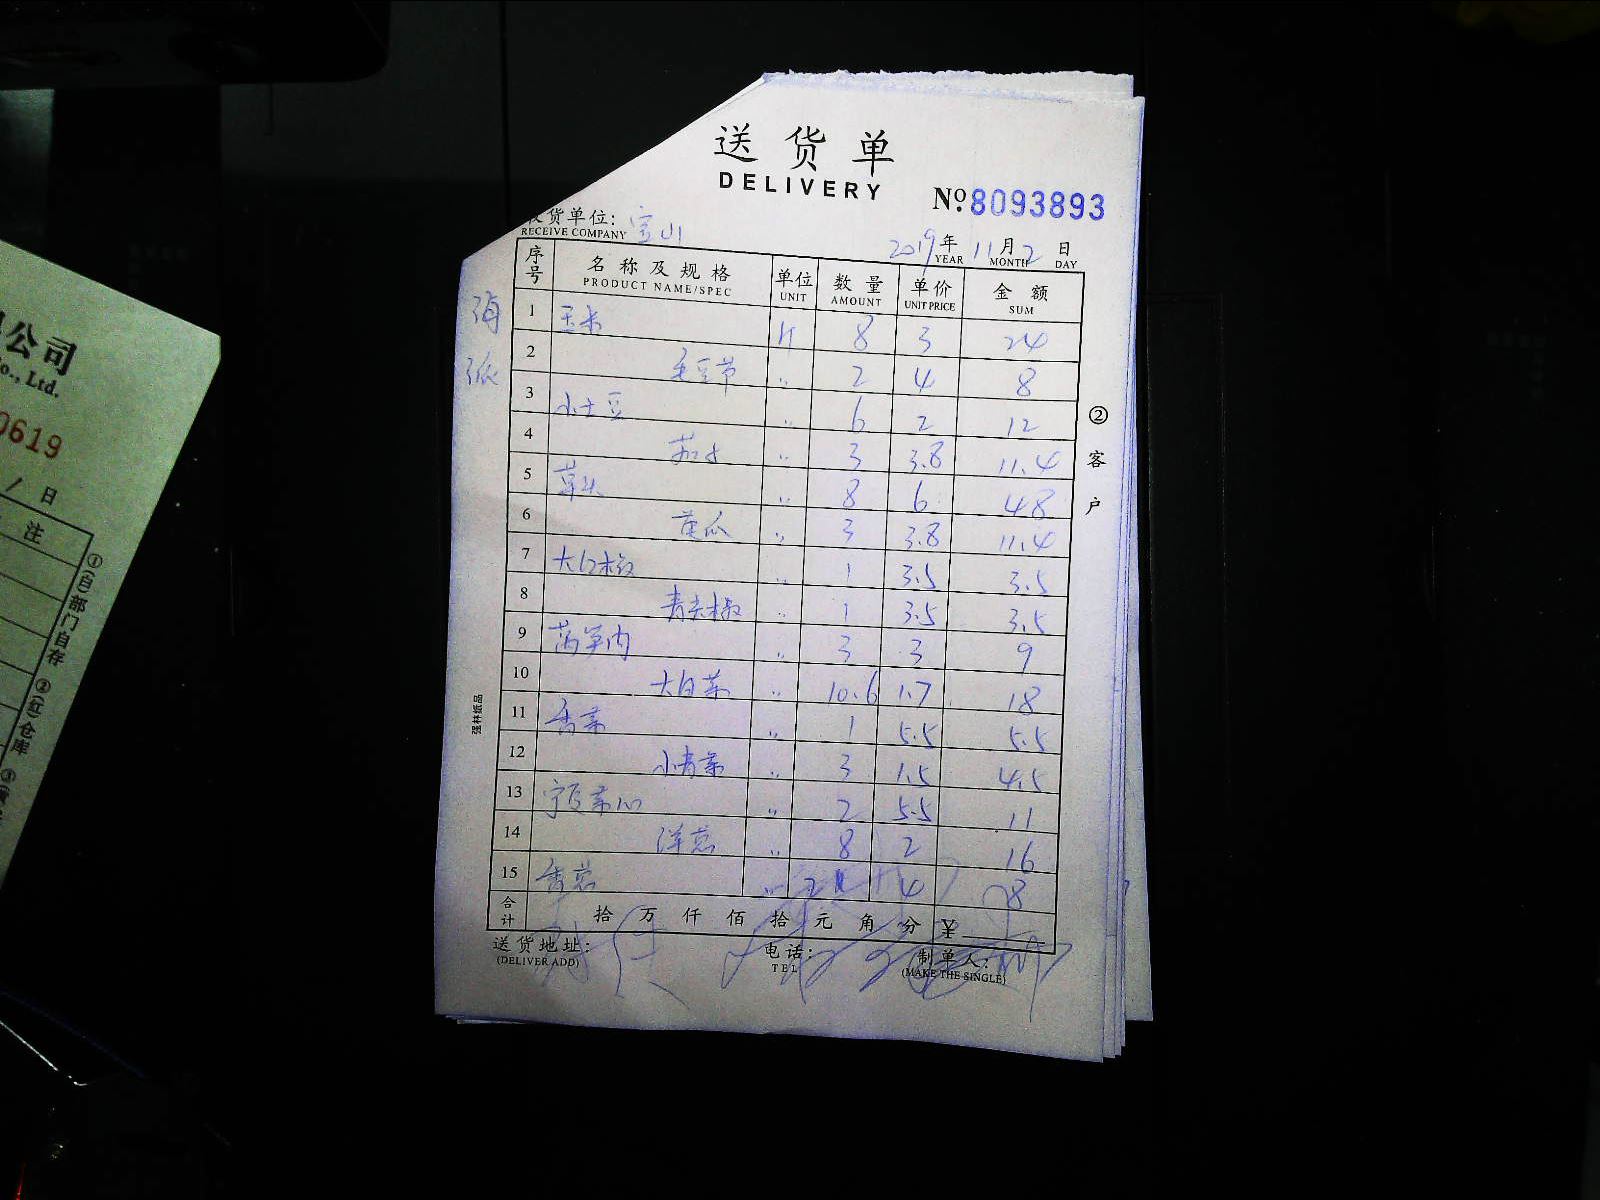 送货单
DELIVERY
№ 8093893
收货单位: 宝山
RECEIVE COMPANY
2019年 11月 2日
YEAR MONTH DAY
序号 名称及规格 单位 数量 单价 金额
PRODUCT NAME/SPEC UNIT AMOUNT UNIT PRICE SUM
1 玉米 斤 8 3 24
2 毛豆节 〃 2 4 8
3 小土豆 〃 6 2 12
4 茄子 〃 3 3.8 11.4
5 草头 〃 8 6 48
6 黄瓜 〃 3 3.8 11.4
7 大红椒 〃 1 3.5 3.5
8 青尖椒 〃 1 3.5 3.5
9 莴笋肉 〃 3 3 9
10 大白菜 〃 10.6 1.7 18
11 香菜 〃 1 5.5 5.5
12 小青菜 〃 3 1.5 4.5
13 宁夏菜心 〃 2 5.5 11
14 洋葱 〃 8 2 16
15 香葱 〃 2 4 8
合计 拾 万 仟 佰 拾 元 角 分 ¥
送货地址: 电话: 制单人:
(DELIVER ADD) TEL (MAKE THE SINGLE)
②客户
强林纸品
公司
Co., Ltd.
0619
/ 日
注
①(白)部门自存 ②(红)仓库 ③